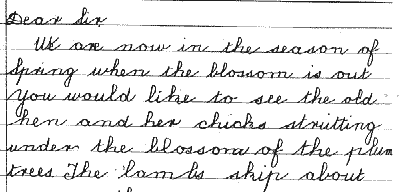 Dear Sir
We are now in the season of
Spring when the blossom is out
you would like to see the old
hen and her chicks strutting
under the blossom of the plum
trees The lambs skip about